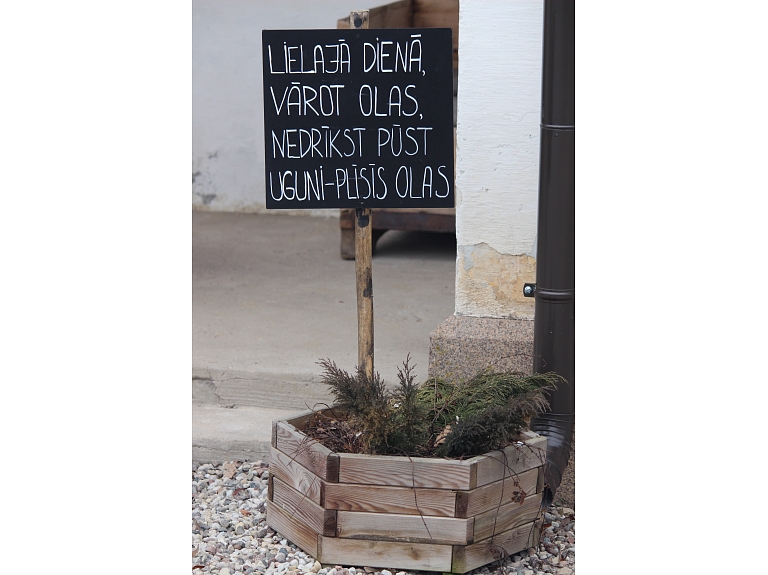 LIELAJĀ DIENĀ,
VĀROT OLAS,
NEDRĪKST PŪST
UGUNI-PLĪSĪS OLAS